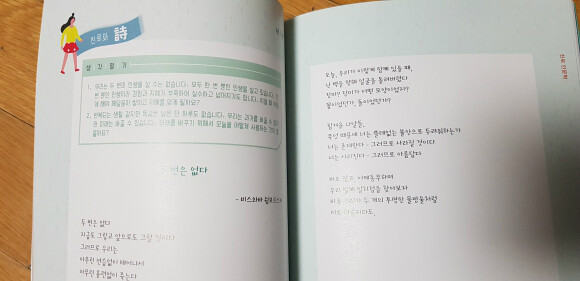 진로와 詩
생 각 열 기
1. 우리는 두 번의 인생을 살 수는 없습니다. 모두 한 번 뿐인 인생을 살고 있습니다. 한
번 뿐인 인생이라 경험과 지혜가 부족하여 실수하고 넘어지기도 합니다.
해 해 깨달음이 쌓이고 지혜를 얻게 될까요?
2. 반복되는 생활 같지만 똑같은 날은 단 하루도 없습니다. 우리는 과거를 바꿀 수
만 미래는 바꿀 수 있습니다. 미래를 바꾸기 위해서 오늘을 어떻게 사용하는 것이
을까요?
번은 없다
- 비스와바 쉼보르스카
두 번은 없다
지금도 그렇고 앞으로도 그럴 것이다
그러므로 우리는
아무런 연습없이 태어나서
아무런 훈련없이 죽는다
오늘, 우리가 이렇게 함께 있을 때,
난 벽을 향해 얼굴을 돌려버렸다
장미? 장미가 어떤 모양이었지?
꽃이었던가, 돌이었던가?
힘겨운 나날들,
무엇 때문에 너는 쓸데없는 불안으로 두려워하는가
너는 존재한다 - 그러므로 사라질 것이다
너는 사라진다 - 그러므로 아름답다
미소 짓고, 어깨동무하며
우리 함께 일치점을 찾아보자
비록 우리가 두 개의 투명한 물방울처럼
서로 다를지라도,
진로 인문학